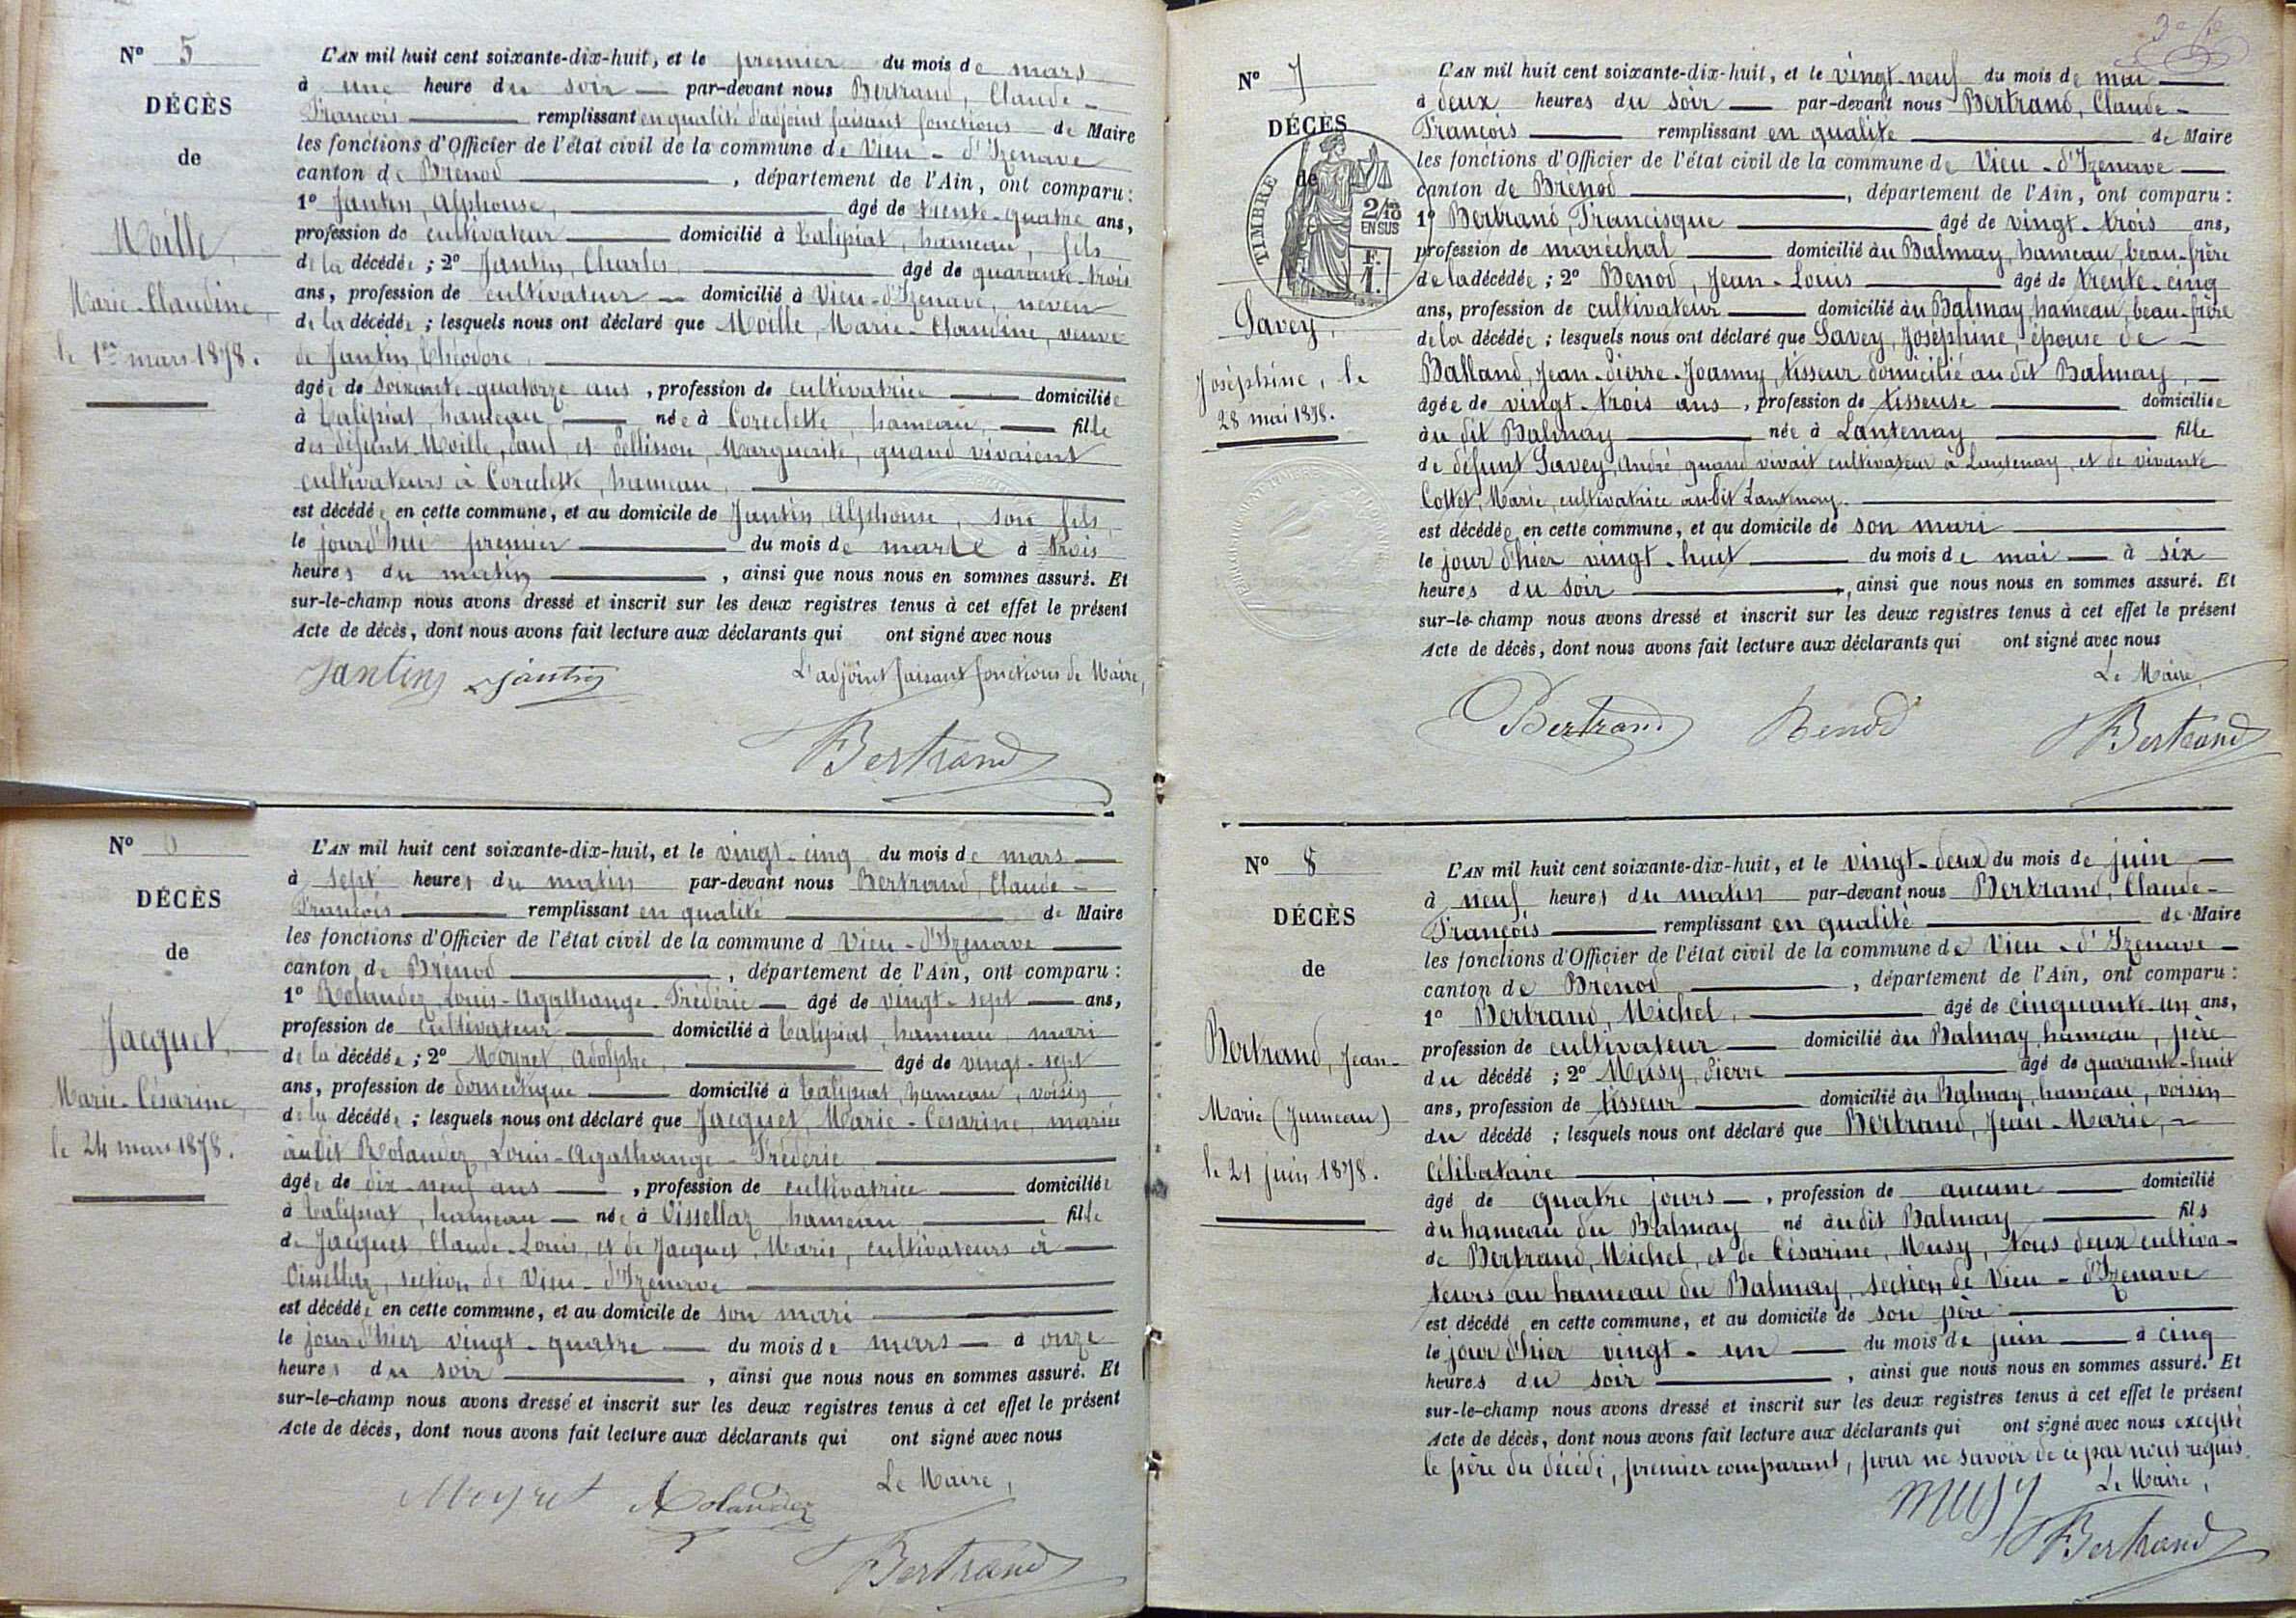 N° 5
DÉCÈS
de
Moille,
Marie-Claudine,
le 1er mars 1878.
L'AN mil huit cent soixante-dix-huit, et le premier du mois de mars
à une heure du soir par-devant nous Bertrand, Claude-
François remplissant en qualité d'adjoint faisant fonctions de Maire
les fonctions d'Officier de l'état civil de la commune de Vieu-d'Izenave
canton de Brénod, département de l'Ain, ont comparu :
1° Jantin, Alphonse, âgé de trente-quatre ans,
profession de cultivateur domicilié à Talipiat, hameau, fils
de la décédée ; 2° Jantin, Charles âgé de quarante-trois
ans, profession de cultivateur domicilié à Vieu-d'Izenave, neveu
de la décédée ; lesquels nous ont déclaré que Moille, Marie-Claudine, veuve
de Jantin, Théodore,
âgée de soixante-quatorze ans, profession de cultivatrice domiciliée
à Talipiat, hameau, née à Corcelette, hameau, fille
des défunts Moille, Paul, et Pellisson, Marguerite, quand vivaient
cultivateurs à Corcelette, hameau,
est décédée en cette commune, et au domicile de Jantin, Alphonse, son fils,
le jourd'hui premier du mois de mars à trois
heures du matin, ainsi que nous nous en sommes assuré. Et
sur-le-champ nous avons dressé et inscrit sur les deux registres tenus à cet effet le présent
Acte de décès, dont nous avons fait lecture aux déclarants qui ont signé avec nous
L'adjoint faisant fonctions de Maire,
Jantin Jantin
Bertrand
N° 6
DÉCÈS
de
Jacquet,
Marie-Césarine,
le 24 mars 1878.
L'AN mil huit cent soixante-dix-huit, et le vingt-cinq du mois de mars
à sept heures du matin par-devant nous Bertrand, Claude-
François remplissant en qualité de Maire
les fonctions d'Officier de l'état civil de la commune d Vieu-d'Izenave
canton de Brénod, département de l'Ain, ont comparu :
1° Rolandez, Louis-Agathange-Frédéric âgé de vingt-sept ans,
profession de cultivateur domicilié à Talipiat, hameau, mari
de la décédée ; 2° Moyret, Adolphe, âgé de vingt-sept
ans, profession de domestique domicilié à Talipiat, hameau, voisin
de la décédée ; lesquels nous ont déclaré que Jacquet, Marie-Césarine, mariée
audit Rolandez, Louis-Agathange-Frédéric
âgée de dix-neuf ans, profession de cultivatrice domiciliée
à Talipiat, hameau née à Oissellaz, hameau fille
de Jacquet, Claude-Louis, et de Jacquet, Marie, cultivateurs à
Oissellaz, section de Vieu-d'Izenave
est décédée en cette commune, et au domicile de son mari
le jour d'hier vingt-quatre du mois de mars à onze
heures du soir, ainsi que nous nous en sommes assuré. Et
sur-le-champ nous avons dressé et inscrit sur les deux registres tenus à cet effet le présent
Acte de décès, dont nous avons fait lecture aux déclarants qui ont signé avec nous
Le Maire,
Moyret Rolandez
Bertrand
N° 7
DÉCÈS
de
TIMBRE
2/10 EN SUS
F. 1.
Savey,
Joséphine, le
28 mai 1878.
L'AN mil huit cent soixante-dix-huit, et le vingt-neuf du mois de mai
à deux heures du soir par-devant nous Bertrand, Claude-
François remplissant en qualité de Maire
les fonctions d'Officier de l'état civil de la commune de Vieu-d'Izenave
canton de Brénod, département de l'Ain, ont comparu :
1° Bertrand, Francisque âgé de vingt-trois ans,
profession de maréchal domicilié au Balmay, hameau, beau-frère
de la décédée ; 2° Benod, Jean-Louis âgé de trente-cinq
ans, profession de cultivateur domicilié au Balmay, hameau, beau-frère
de la décédée ; lesquels nous ont déclaré que Savey, Joséphine, épouse de
Balland, Jean-Pierre-Joanny, tisseur domicilié au dit Balmay,
âgée de vingt-trois ans, profession de tisseuse domiciliée
au dit Balmay née à Lantenay fille
de défunt Savey, André quand vivait cultivateur à Lantenay, et de vivante
Cottet, Marie, cultivatrice audit Lantenay.
est décédée en cette commune, et au domicile de son mari
le jour d'hier vingt-huit du mois de mai à six
heures du soir, ainsi que nous nous en sommes assuré. Et
sur-le-champ nous avons dressé et inscrit sur les deux registres tenus à cet effet le présent
Acte de décès, dont nous avons fait lecture aux déclarants qui ont signé avec nous
Le Maire,
Bertrand Benod Bertrand
N° 8
DÉCÈS
de
Bertrand, Jean-
Marie (Jumeau)
le 21 juin 1878.
L'AN mil huit cent soixante-dix-huit, et le vingt-deux du mois de juin
à neuf heures du matin par-devant nous Bertrand, Claude-
François remplissant en qualité de Maire
les fonctions d'Officier de l'état civil de la commune de Vieu-d'Izenave
canton de Brénod, département de l'Ain, ont comparu :
1° Bertrand, Michel, âgé de cinquante-un ans,
profession de cultivateur domicilié au Balmay, hameau, père
du décédé ; 2° Musy, Pierre âgé de quarante-huit
ans, profession de tisseur domicilié au Balmay, hameau, voisin
du décédé ; lesquels nous ont déclaré que Bertrand, Jean-Marie,
célibataire
âgé de quatre jours, profession de aucune domicilié
au hameau du Balmay né audit Balmay fils
de Bertrand, Michel, et de Césarine, Musy, tous deux cultiva-
teurs au hameau du Balmay, section de Vieu-d'Izenave
est décédé en cette commune, et au domicile de son père
le jour d'hier vingt-un du mois de juin à cinq
heures du soir, ainsi que nous nous en sommes assuré. Et
sur-le-champ nous avons dressé et inscrit sur les deux registres tenus à cet effet le présent
Acte de décès, dont nous avons fait lecture aux déclarants qui ont signé avec nous excepté
le père du décédé, premier comparant, pour ne savoir de ce par nous requis.
Le Maire,
Musy
Bertrand